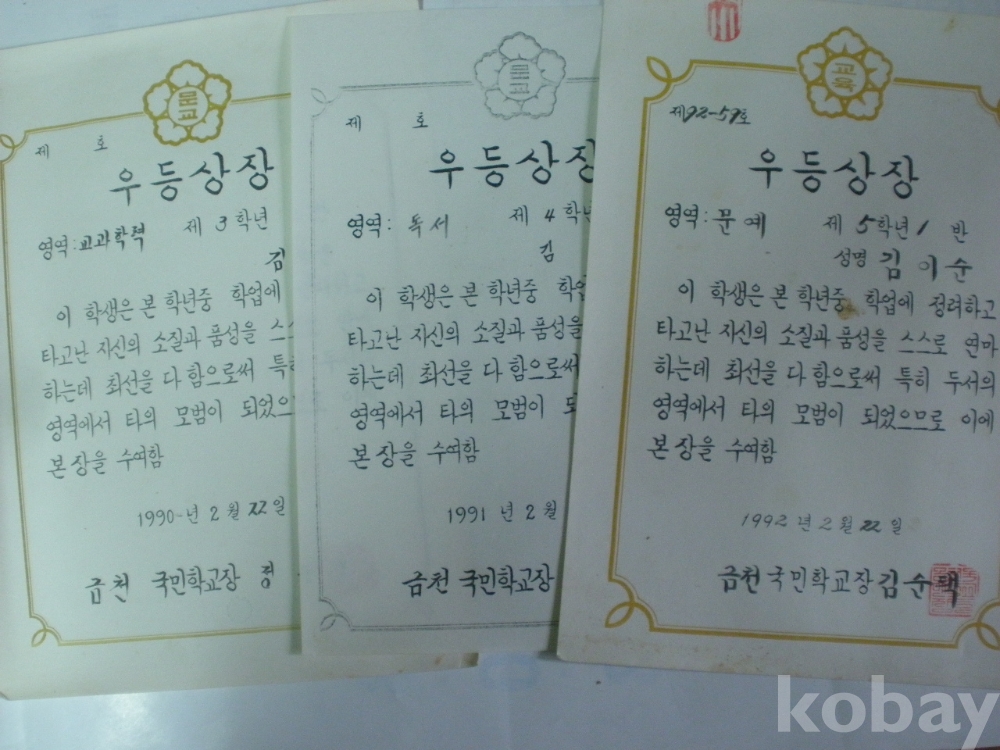 문교
제 호
우등상장
영역: 교과학력 제 3학년
김
이 학생은 본 학년중 학업에
타고난 자신의 소질과 품성을 스스
하는데 최선을 다 함으로써 특히
영역에서 타의 모범이 되었으
본 장을 수여함
1990년 2월 22일
금천 국민학교장 정
문교
제 호
우등상장
영역: 독서 제 4학년
김
이 학생은 본 학년중 학업
타고난 자신의 소질과 품성을
하는데 최선을 다 함으로써
영역에서 타의 모범이 되
본 장을 수여함
1991년 2월
금천 국민학교장
교육
제92-59호
우등상장
영역: 문예 제 5학년 1 반
성명 김이순
이 학생은 본 학년중 학업에 정려하고
타고난 자신의 소질과 품성을 스스로 연마
하는데 최선을 다 함으로써 특히 두서의
영역에서 타의 모범이 되었으므로 이에
본 장을 수여함
1992년 2월 22일
금천국민학교장 김순택
kobay